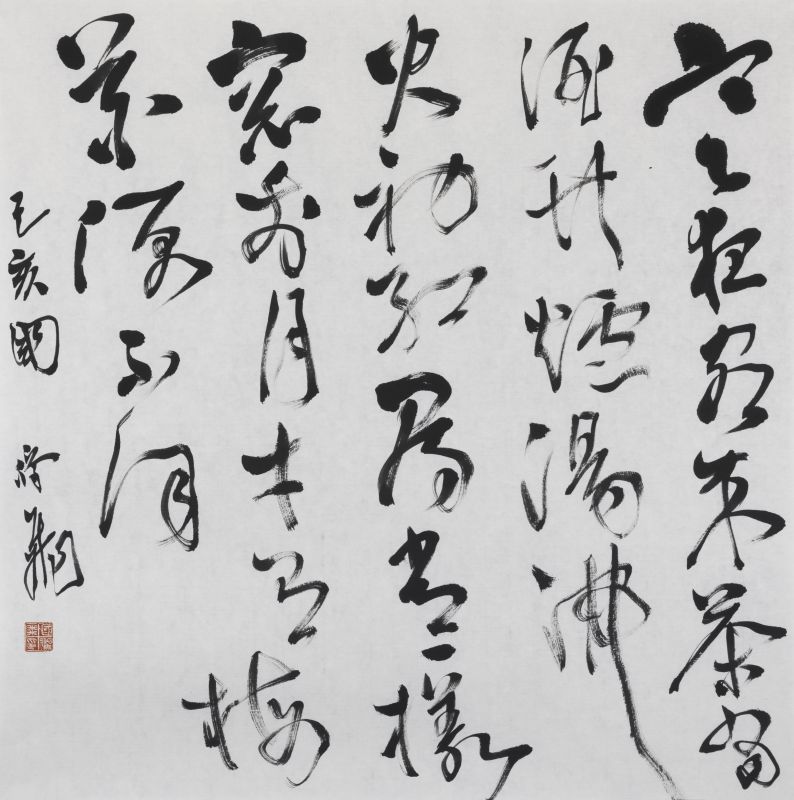 寒夜客來茶當
酒竹爐湯沸
火初紅尋常一樣
窗前月才有梅
花便不同
己亥國